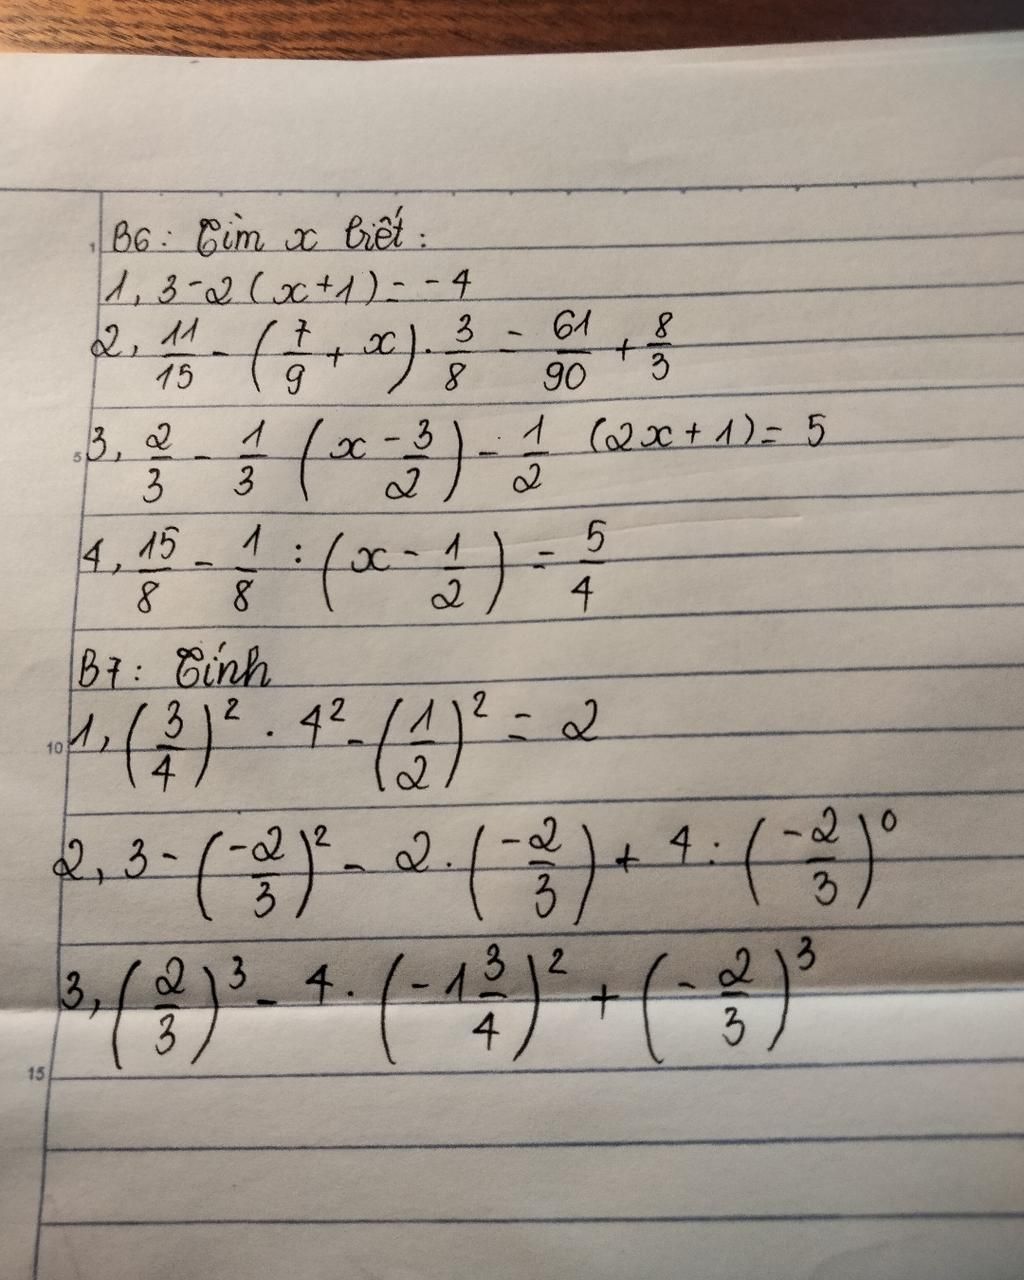 B6: Tìm x biết:
1, 3-2(x+1) = -4
2, 11/15 - (7/9 + x) . 3/8 = 61/90 + 8/3
3, 2/3 - 1/3 (x - 3/2) - 1/2 (2x+1) = 5
4, 15/8 - 1/8 : (x - 1/2) = 5/4
B7: Tính
1, (3/4)² . 4² - (1/2)² = 2
2, 3 - (-2/3)² - 2. (-2/3) + 4 : (-2/3)⁰
3, (2/3)³ - 4. (-1 3/4)² + (-2/3)³
1
5
10
15